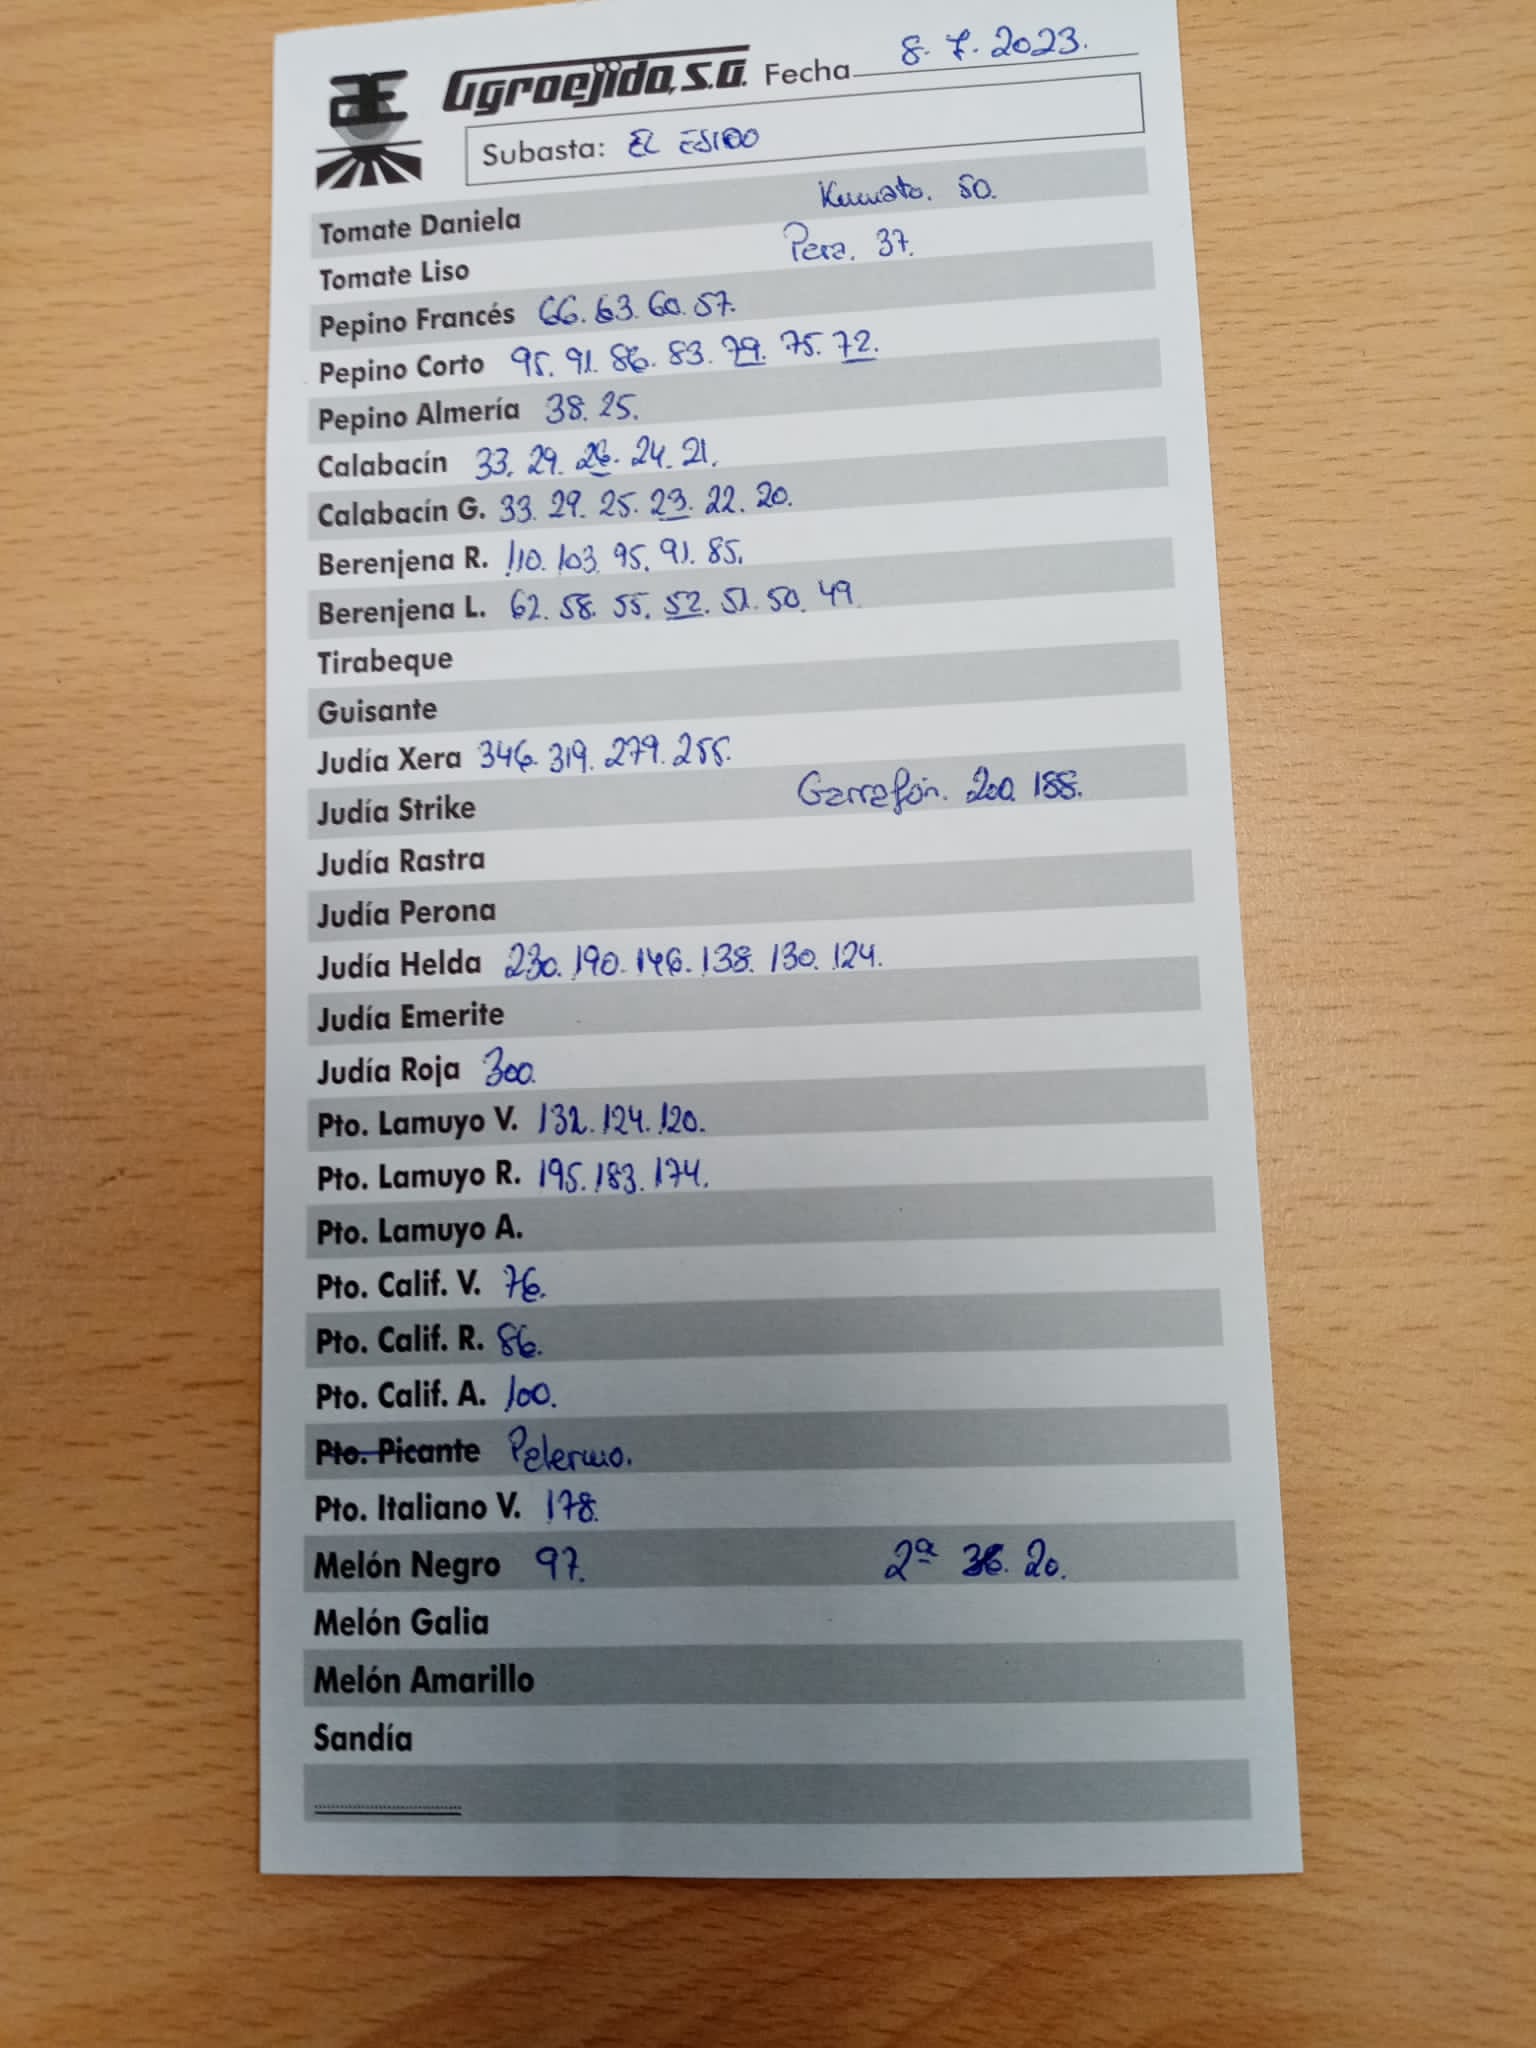 AE Agroejido, S.A. Fecha 8.7.2023.
Subasta: EL EJIDO
Tomate Daniela Kumato. 50.
Tomate Liso Pera. 37.
Pepino Francés 66. 63. 60. 57.
Pepino Corto 95. 91. 86. 83. 79. 75. 72.
Pepino Almería 38. 25.
Calabacín 33. 29. 26. 24. 21.
Calabacín G. 33. 29. 25. 23. 22. 20.
Berenjena R. 110. 103. 95. 91. 85.
Berenjena L. 62. 58. 55. 52. 51. 50. 49.
Tirabeque
Guisante
Judía Xera 346. 319. 279. 255.
Judía Strike Garrafón. 200. 188.
Judía Rastra
Judía Perona
Judía Helda 230. 190. 146. 138. 130. 124.
Judía Emerite
Judía Roja 300.
Pto. Lamuyo V. 132. 124. 120.
Pto. Lamuyo R. 195. 183. 174.
Pto. Lamuyo A.
Pto. Calif. V. 76.
Pto. Calif. R. 86.
Pto. Calif. A. 100.
Pto. Picante Palermo.
Pto. Italiano V. 178.
Melón Negro 97. 2ª 20.
Melón Galia
Melón Amarillo
Sandía